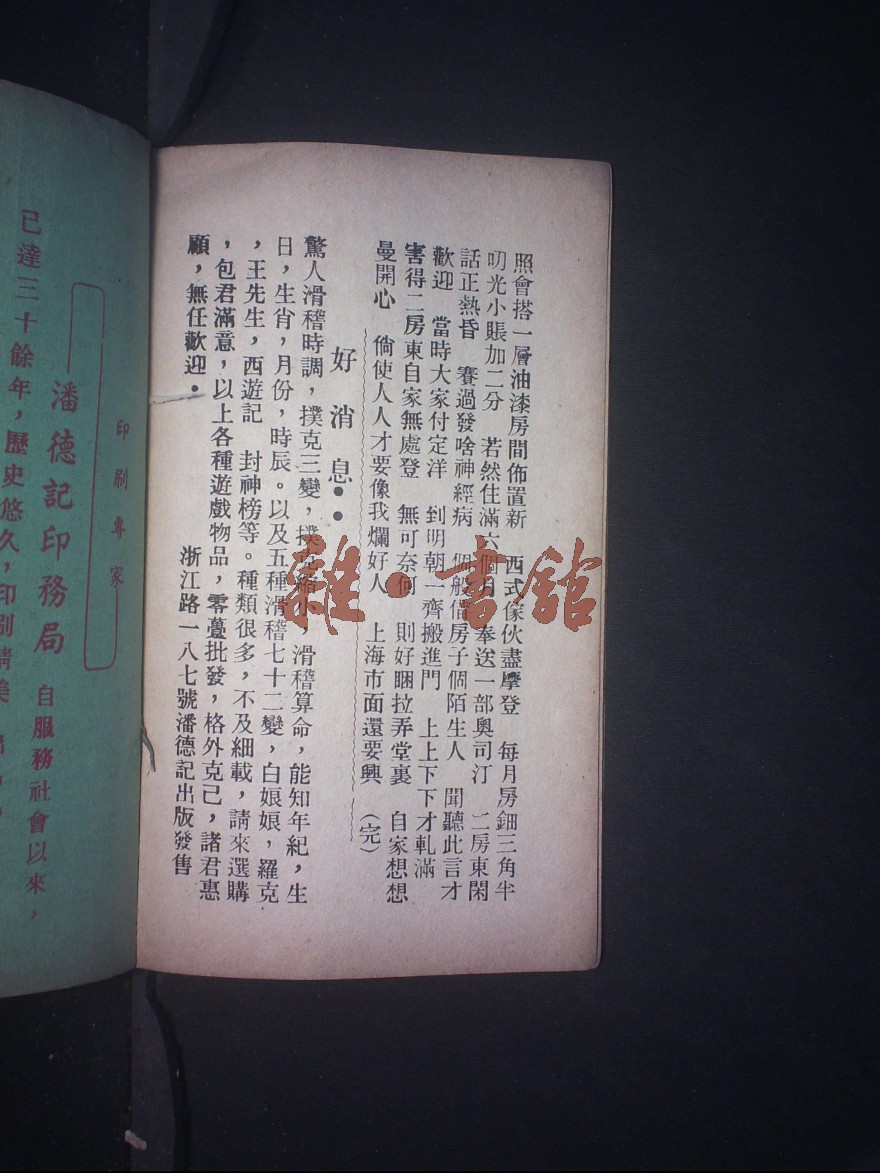 照會搭一層油漆房間佈置新　西式傢伙盡摩登　每月房鈿三角半
叨光小賬加二分　若然住滿六個月　奉送一部奧司汀　二房東閑
話正熱昏　賽過發啥神經病　個般借房子個陌生人　聞聽此言才
歡迎　當時大家付定洋　到明朝一齊搬進門　上上下下才軋滿
害得二房東自家無處登　無可奈何　則好睏拉弄堂裏　自家想想
曼開心　倘使人人才要像我爛好人　上海市面還要興　(完)
好消息··
驚人滑稽時調，撲克三變，撲克縮小，滑稽算命，能知年紀，生
日，生肖，月份，時辰。以及五種滑稽七十二變，白娘娘，羅克
，王先生，西遊記　封神榜等。種類很多，不及細載，請來選購
，包君滿意，以上各種遊戲物品，零躉批發，格外克己，諸君惠
顧，無任歡迎·
浙江路一八七號潘德記出版發售
雜·書館
印刷專家
潘德記印務局
自服務社會以來，
已達三十餘年，歷史悠久，印刷精美